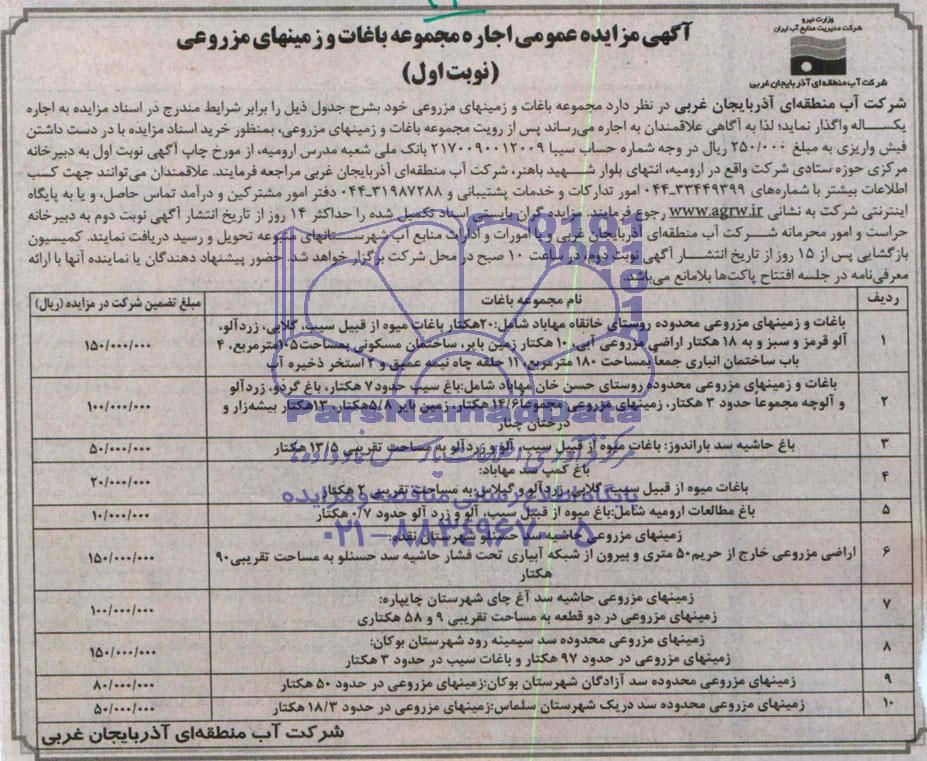 وزارت نیرو
شرکت مدیریت منابع آب ایران
شرکت آب منطقه‌ای آذربایجان غربی
آگهی مزایده عمومی اجاره مجموعه باغات و زمینهای مزروعی
(نوبت اول)
شرکت آب منطقه‌ای آذربایجان غربی در نظر دارد مجموعه باغات و زمینهای مزروعی خود بشرح جدول ذیل را برابر شرایط مندرج در اسناد مزایده به اجاره
یکساله واگذار نماید؛ لذا به آگاهی علاقمندان به اجاره می‌رساند پس از رویت مجموعه باغات و زمینهای مزروعی، بمنظور خرید اسناد مزایده با در دست داشتن
فیش واریزی به مبلغ ۲۵۰/۰۰۰ ریال در وجه شماره حساب سیبا ۲۱۷۰۰۹۰۰۱۲۰۰۹ بانک ملی شعبه مدرس ارومیه، از مورخ چاپ آگهی نوبت اول به دبیرخانه
مرکزی حوزه ستادی شرکت واقع در ارومیه، انتهای بلوار شهید باهنر، شرکت آب منطقه‌ای آذربایجان غربی مراجعه فرمایند. علاقمندان می‌توانند جهت کسب
اطلاعات بیشتر با شماره‌های ۳۳۴۴۹۳۹۹-۰۴۴ امور تدارکات و خدمات پشتیبانی و ۳۱۹۸۷۲۸۸-۰۴۴ دفتر امور مشترکین و درآمد تماس حاصل، و یا به پایگاه
اینترنتی شرکت به نشانی www.agrw.ir رجوع فرمایند. مزایده گران بایستی اسناد تکمیل شده را حداکثر ۱۴ روز از تاریخ انتشار آگهی نوبت دوم به دبیرخانه
حراست و امور محرمانه شرکت آب منطقه‌ای آذربایجان غربی و یا امورات و ادارات منابع آب شهرستانهای متبوعه تحویل و رسید دریافت نمایند. کمیسیون
بازگشایی پس از ۱۵ روز از تاریخ انتشار آگهی نوبت دوم، در ساعت ۱۰ صبح در محل شرکت برگزار خواهد شد. حضور پیشنهاد دهندگان یا نماینده آنها با ارائه
معرفی‌نامه در جلسه افتتاح پاکت‌ها بلامانع می‌باشد.
ردیف نام مجموعه باغات مبلغ تضمین شرکت در مزایده (ریال)
۱ باغات و زمینهای مزروعی محدوده روستای خانقاه مهاباد شامل:۲۰هکتار باغات میوه از قبیل سیب، گلابی، زردآلو،
آلو قرمز و سبز و به ۱۸ هکتار اراضی مزروعی آبی، ۱۰ هکتار زمین بایر، ساختمان مسکونی بمساحت۱۰۵مترمربع، ۴
باب ساختمان انباری جمعا بمساحت ۱۸۰ مترمربع، ۱۱ حلقه چاه نیمه عمیق و ۲ استخر ذخیره آب ۱۵۰/۰۰۰/۰۰۰
۲ باغات و زمینهای مزروعی محدوده روستای حسن خان مهاباد شامل:باغ سیب حدود۷ هکتار، باغ گردو، زردآلو
و آلوچه مجموعا حدود ۳ هکتار، زمینهای مزروعی مجموعا۱۴/۶هکتار، زمین بایر ۵/۸هکتار، ۱۳هکتار بیشه‌زار و
درختان چنار ۱۰۰/۰۰۰/۰۰۰
۳ باغ حاشیه سد باراندوز: باغات میوه از قبیل سیب، آلو و زردآلو به مساحت تقریبی ۱۳/۵ هکتار ۵۰/۰۰۰/۰۰۰
۴ باغ کمپ سد مهاباد:
باغات میوه از قبیل سیب، گلابی، زردآلو و گیلاس به مساحت تقریبی ۲ هکتار ۲۰/۰۰۰/۰۰۰
۵ باغ مطالعات ارومیه شامل:باغ میوه از قبیل سیب، آلو و زرد آلو حدود ۰/۷ هکتار ۱۰/۰۰۰/۰۰۰
۶ زمینهای مزروعی حاشیه سد حسنلو شهرستان نقده:
اراضی مزروعی خارج از حریم۵۰ متری و بیرون از شبکه آبیاری تحت فشار حاشیه سد حسنلو به مساحت تقریبی۹۰
هکتار ۱۵۰/۰۰۰/۰۰۰
۷ زمینهای مزروعی حاشیه سد آغ چای شهرستان چایپاره:
زمینهای مزروعی در دو قطعه به مساحت تقریبی ۹ و ۵۸ هکتاری ۱۰۰/۰۰۰/۰۰۰
۸ زمینهای مزروعی محدوده سد سیمینه رود شهرستان بوکان:
زمینهای مزروعی در حدود ۹۷ هکتار و باغات سیب در حدود ۳ هکتار ۱۵۰/۰۰۰/۰۰۰
۹ زمینهای مزروعی محدوده سد آزادگان شهرستان بوکان:زمینهای مزروعی در حدود ۵۰ هکتار ۸۰/۰۰۰/۰۰۰
۱۰ زمینهای مزروعی محدوده سد دریک شهرستان سلماس:زمینهای مزروعی در حدود ۱۸/۳ هکتار ۵۰/۰۰۰/۰۰۰
شرکت آب منطقه‌ای آذربایجان غربی
ParsNamadData
پایگاه اطلاع رسانی مناقصه و مزایده
۰۲۱-۸۸۳۴۹۶۷۰-۵